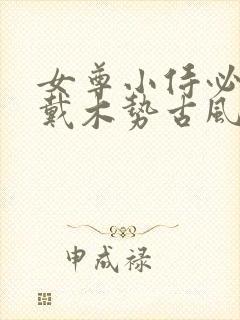 女尊小侍必
戴木势古風
申成禄